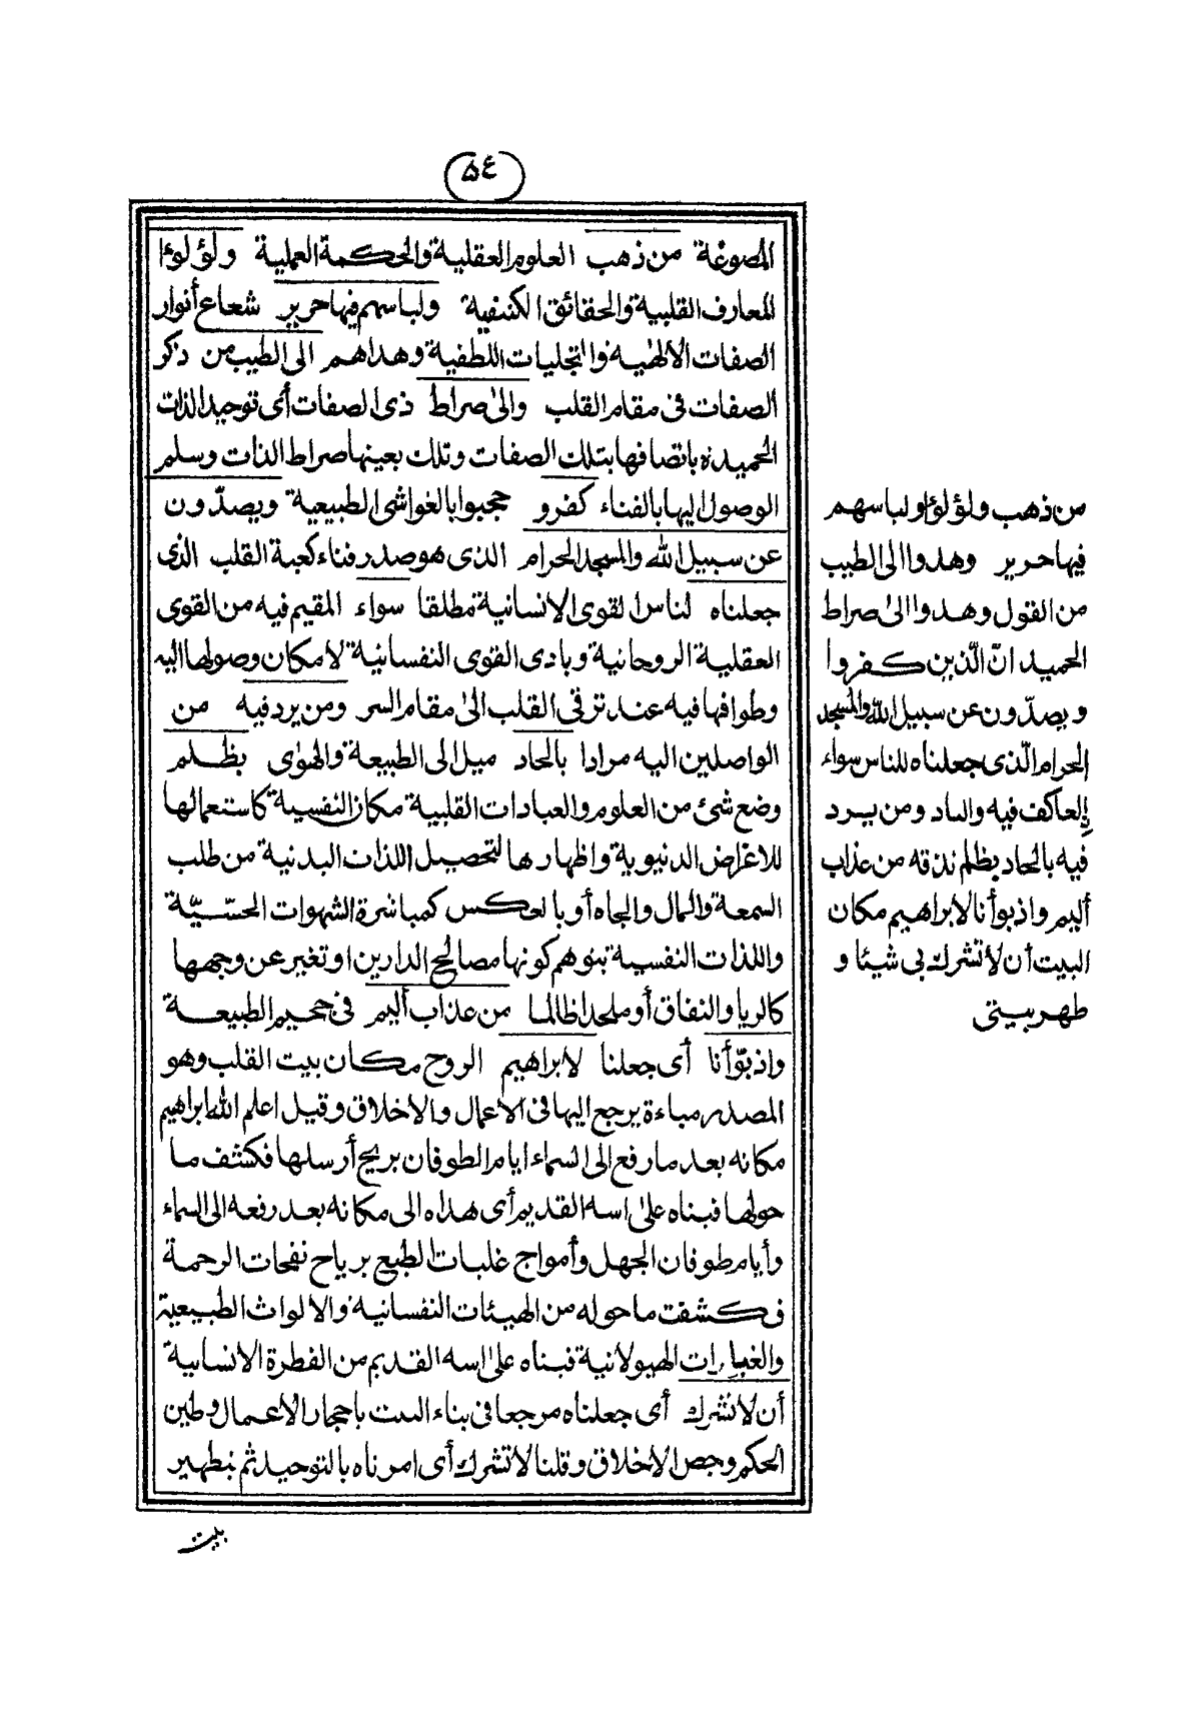 ٥٤
المصوغة من ذهب العلوم العقلية والحكمة العملية ولؤلؤا
المعارف القلبية والحقائق الكشفية ولباسهم فيها حرير شعاع أنوار
الصفات الالهية والتجليات اللطفية وهداهم الى الطيب من ذكر
الصفات فى مقام القلب والى صراط ذى الصفات أى توحيد الذات
الحميدة باتصافها بتلك الصفات وتلك بعينها صراط الذات وسلم
الوصول اليها بالفناء كفروا حجبوا بالغواشى الطبيعية ويصدّون
عن سبيل الله والمسجد الحرام الذى هو صدر فناء كعبة القلب الذى
جعلناه لناس القوى الانسانية مطلقا سواء المقيم فيه من القوى
العقلية الروحانية وبادى القوى النفسانية لامكان وصولها اليه
وطوافها فيه عند ترقى القلب الى مقام السر ومن يرد فيه من
الواصلين اليه مرادا بالحاد ميل الى الطبيعة والهوى بظلم
وضع شئ من العلوم والعبادات القلبية مكان النفسية كاستعمالها
للاغراض الدنيوية واظهارها لتحصيل اللذات البدنية من طلب
السمعة والمال والجاه أو بالعكس كمباشرة الشهوات الحسّيّة
واللذات النفسية بتوهم كونها مصالح الدارين او تغير عن وجهها
كالريا والنفاق أو ملحدا ظالما من عذاب أليم فى جحيم الطبيعة
واذ بوّأنا أى جعلنا لابراهيم الروح مكان بيت القلب وهو
المصدر مباءة يرجع اليها فى الاعمال والاخلاق وقيل اعلم الله ابراهيم
مكانه بعد ما رفع الى السماء ايام الطوفان بريح أرسلها فكشف ما
حولها فبناه على اسه القديم أى هداه الى مكانه بعد رفعه الى السماء
وأيام طوفان الجهل وأمواج غلبات الطبع برياح نفحات الرحمة
فكشفت ما حوله من الهيئات النفسانية والالواث الطبيعية
والغبارات الهيولانية فبناه على اسه القديم من الفطرة الانسانية
أن لا تشرك أى جعلناه مرجعا فى بناء البيت باحجار الاعمال وطين
الحكم وجص الاخلاق وقلنا لا تشرك أى امرناه بالتوحيد ثم بتطهير
بيت
من ذهب ولؤلؤا ولباسهم
فيها حرير وهدوا الى الطيب
من القول وهدوا الى صراط
الحميد انّ الّذين كفروا
ويصدّون عن سبيل الله والمسجد
الحرام الّذى جعلناه للناس سواء
العاكف فيه والباد ومن يرد
فيه بالحاد بظلم نذقه من عذاب
أليم واذ بوأنا لابراهيم مكان
البيت أن لا تشرك بى شيئا و
طهر بيتى